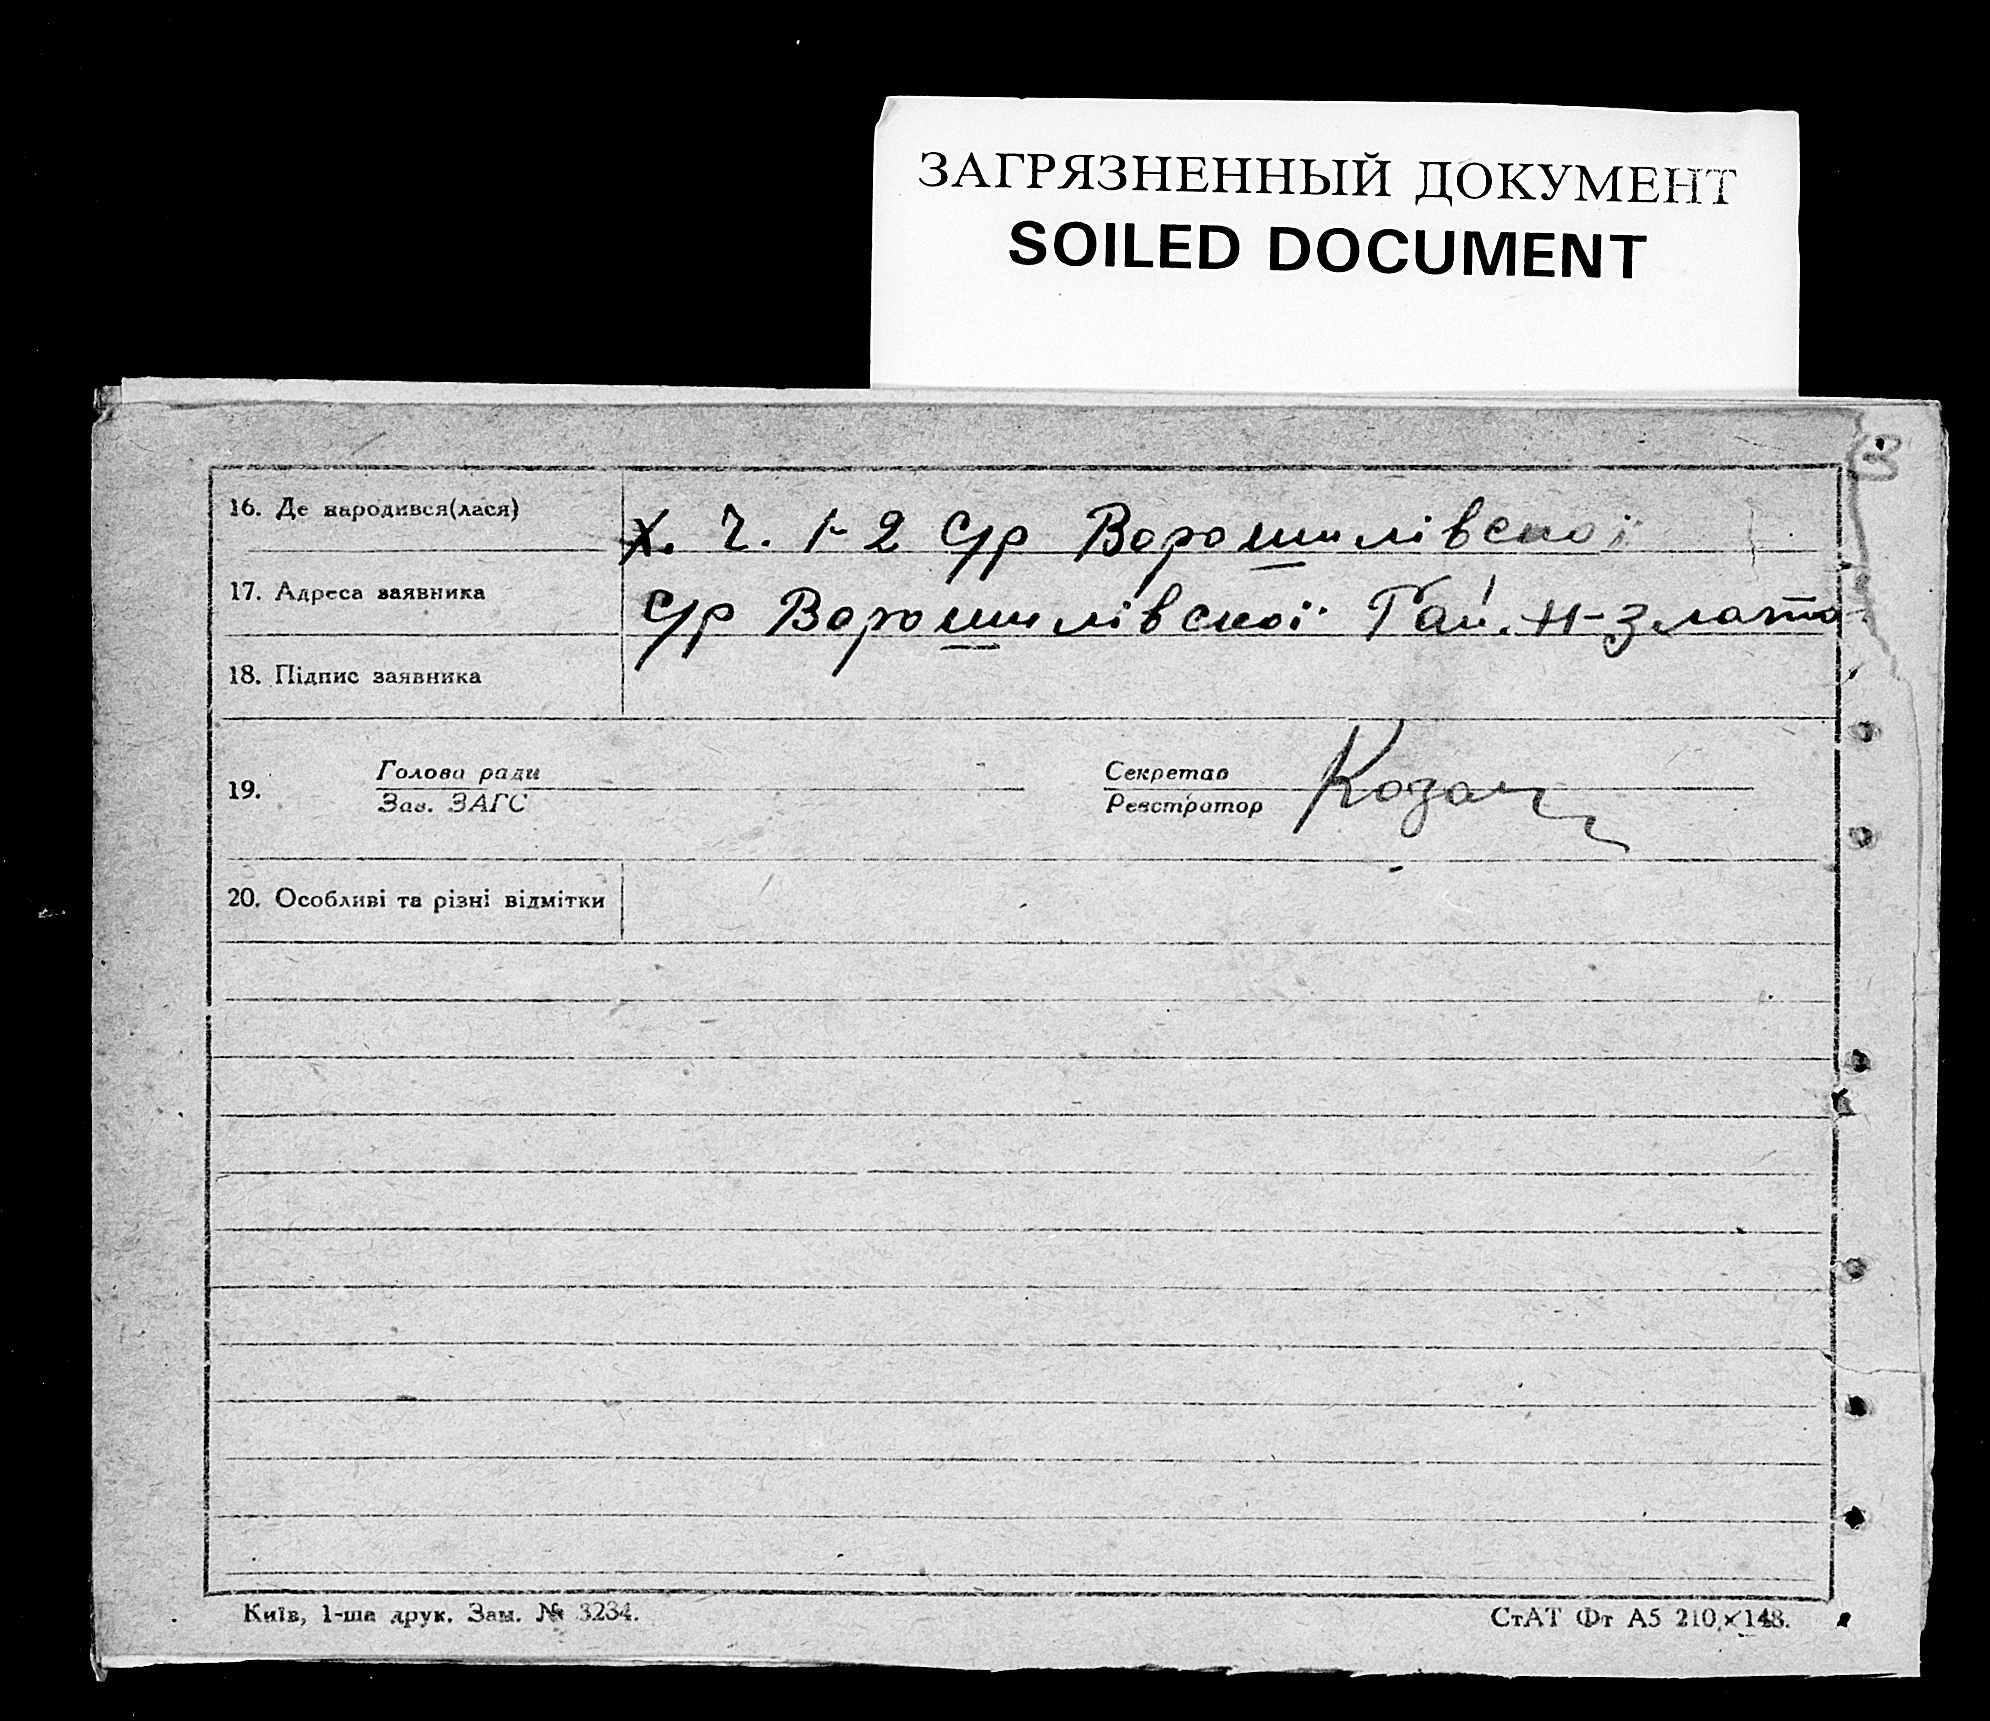 ЗАГРЯЗНЕННЫЙ ДОКУМЕНТ
SOILED DOCUMENT
16. Де народився(лася) х. Ч. 1-2 с/р Ворошилівської
17. Адреса заявника с/р Ворошилівської Гай. Н-Злато-
18. Підпис заявника
19. Голова ради Секретар Козач
Зав. ЗАГС Реєстратор
20. Особливі та різні відмітки
Київ, 1-ша друк. Зам. № 3234. СтАТ Фт А5 210×148.